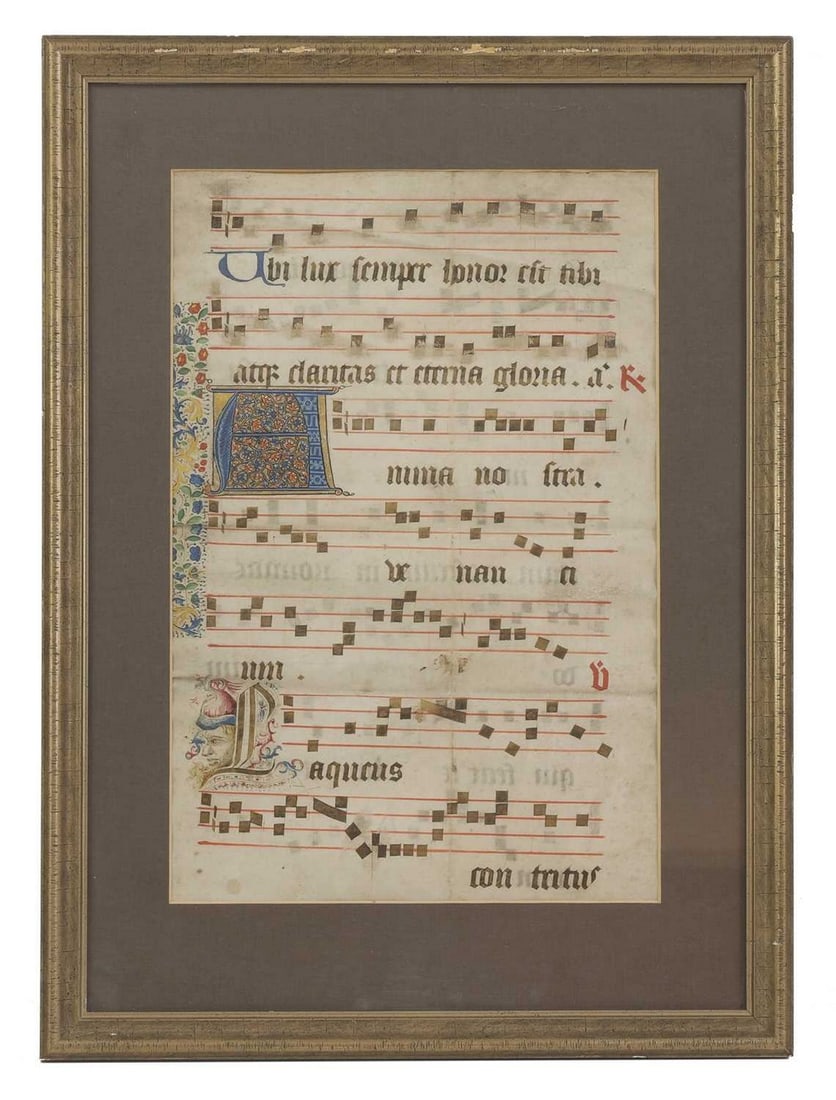 Ubi lux semper honor est tibi
atqȝ claritas et eterna gloria. a. ℟
A nima no stra.
ve nan ci
um. ℣
Laqueus
con tritus